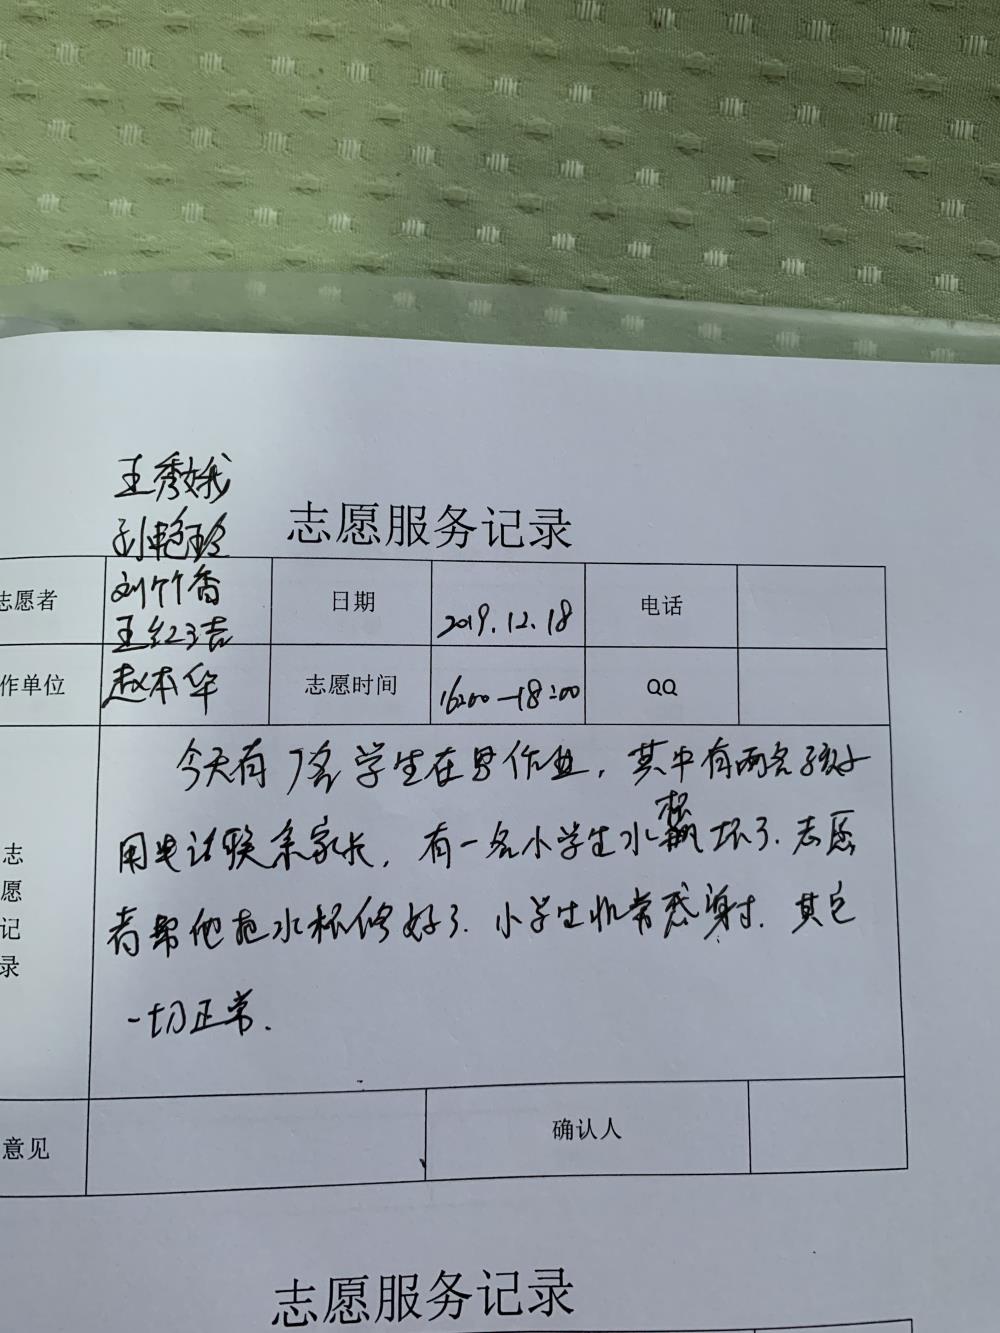 王秀娥
孙艳玲
志愿服务记录
志愿者
刘竹香
王红洁
日期
2019.12.18
电话
作单位
赵本华
志愿时间
16:00—18:00
QQ
志愿记录
今天有7名学生在写作业，其中有两名孩子
用电话联系家长，有一名小学生水杯坏了.志愿
者帮他把水杯修好了.小学生非常感谢.其它
一切正常.
意见
确认人
志愿服务记录